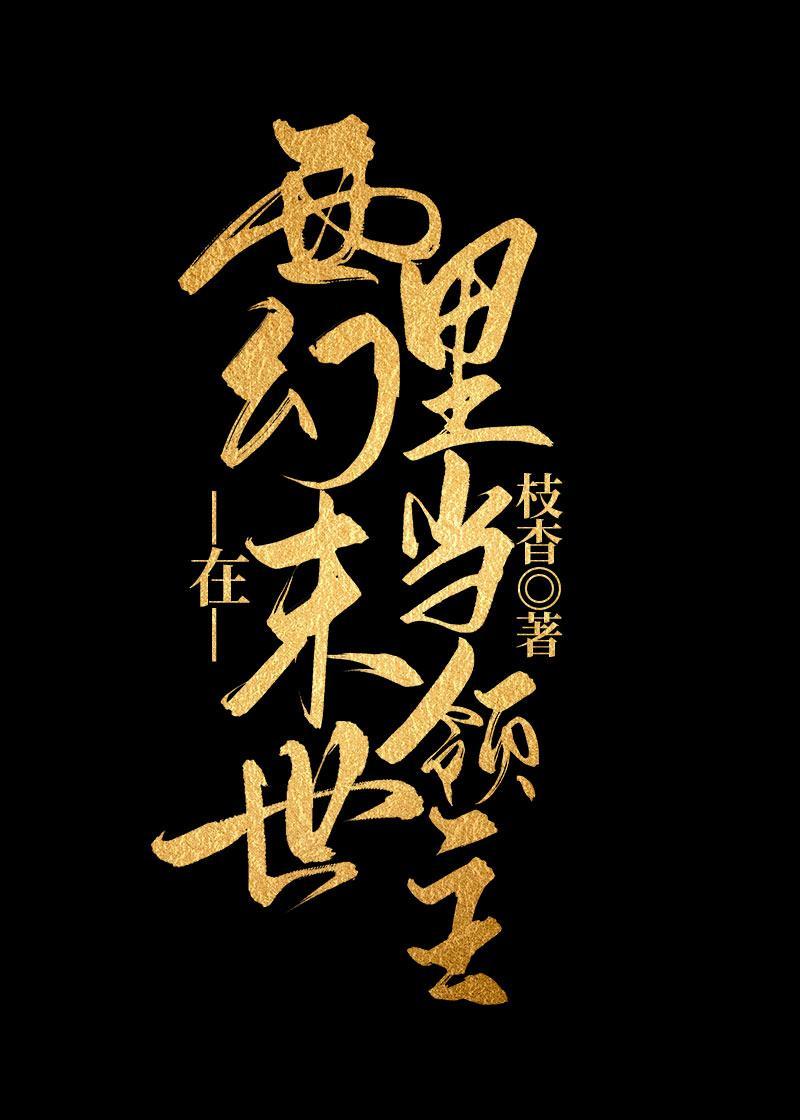 在
西幻末世
里当领主
枝杳◎著